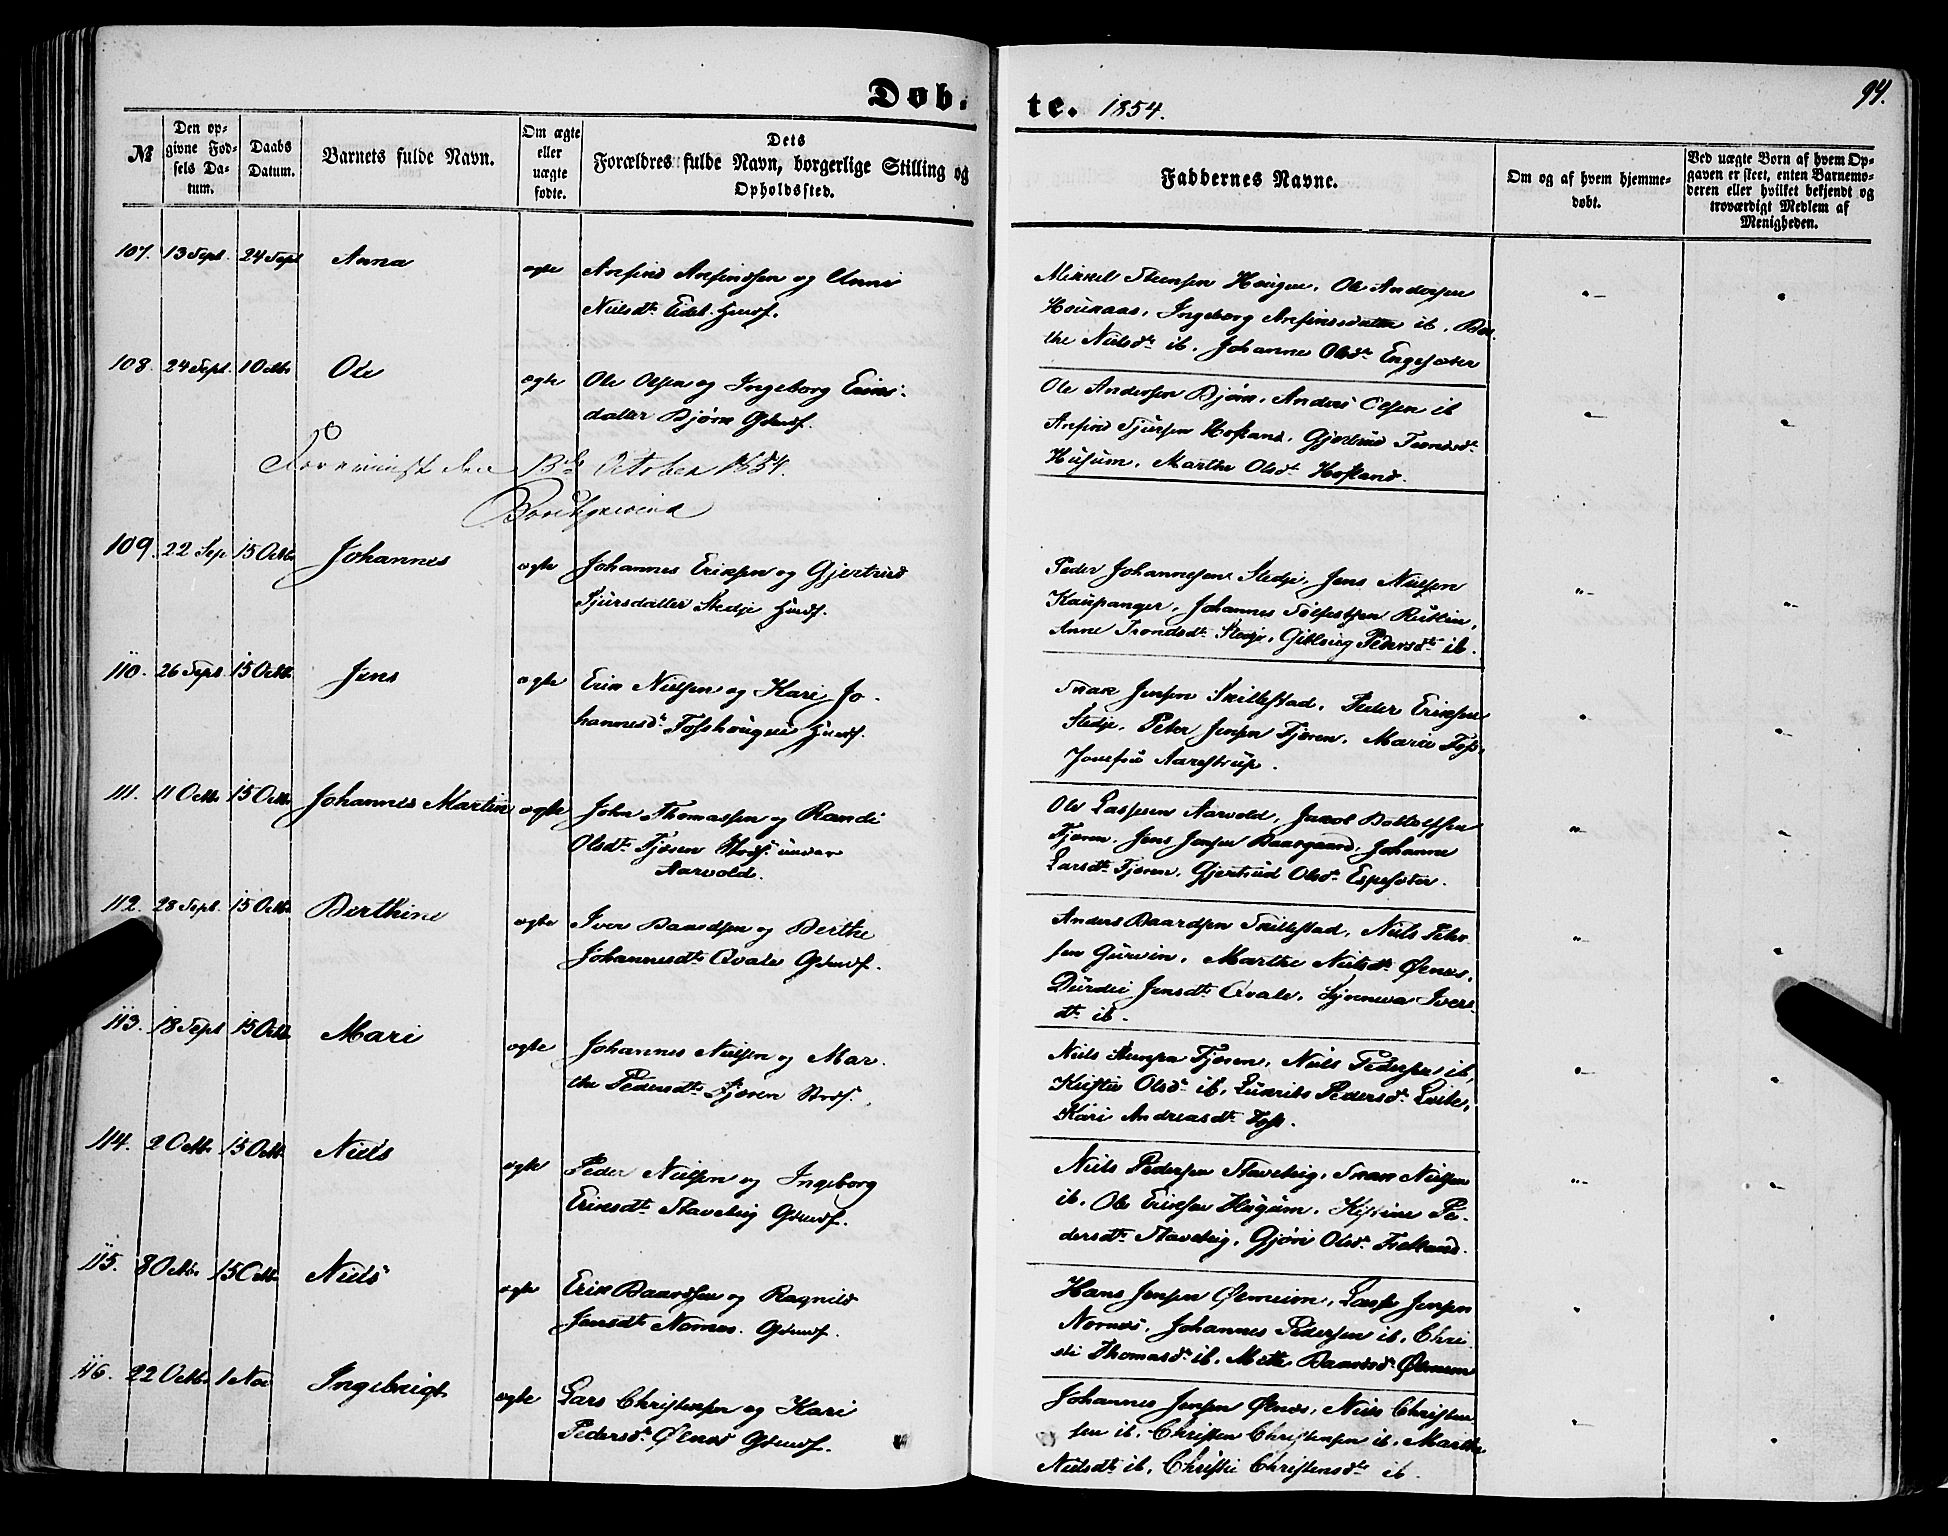 Døb-
te. 1854.
94.
№
Den op-
givne Fød-
sels Da-
tum.
Daabs
Datum.
Barnets fulde Navn.
Om ægte
eller
uægte
fødte.
Dets
Forældres fulde Navn, borgerlige Stilling og
Opholdssted.
Faddernes Navne.
Om og af hvem hjemme-
døbt.
Ved uægte Børn af hvem Op-
gaven er skeet, enten Barnemo-
deren eller hvilket bekjendt og
troværdigt Medlem af
Menigheden.
107. 13 Sept. 24 Sept Anna ægte Arefind Arefindsen og Unni
Nielsdt. Eidet. Huusf.
Mikkel Steensen Hougen, Ole Andersen
Houkaas, Ingeborg Arefinsdatter ib. Ber-
the Nielsdt. ib. Johanne Olsdt. Engesæter
108. 24 Sept. 1 Octbr. Ole ægte Ole Olsen og Ingeborg Eriks-
datter Bjørk Gdmdf.
Ole Andersen Bjørk, Anders Olsen ib
Arefind Sjursen Hofland, Gjertrud Trondsdt.
Husum, Marthe Olsdt. Hofland.
den 13de October 1854.
109. 22 Sep 15 Octbr Johannes ægte Johannes Eriksen og Gjertrud
Sjursdatter Stedje Huusf.
Peder Johannesen Stedje, Jens Nielsen
Kaupanger, Johannes Tolfestsen Rutlin,
Anne Trondsdt. Stedje, Gitlaug Pedersdt. ib.
110. 26 Sept. 15 Octbr. Jens ægte Erik Nielsen og Kari Jo-
hannesdt. Fosshougen Huusf.
Isak Jensen Skillestad, Peder Eriksen
Stedje, Peter Jensen Fjæren, Marie Foss,
Josefine Aarestrup.
111. 11 Octbr. 15 Octbr Johannes Martin ægte John Thomassen og Randi
Olsdt. Fjæren Strds. under
Aarvold.
Ole Lassesen Aarvold, Jakob Bottolfsen
Fjæren, Jens Jensen Baasgaard, Johanne
Larsdt. Fjæren, Gjertrud Olsdt. Espesæter.
112. 28 Sept. 15 Octbr Berthine ægte Iver Baardsen og Berthe
Johannesdt. Qvale Gdmdf.
Anders Baardsen Skillestad, Niels Peder-
sen Gurvin, Marthe Nielsdt. Ølnæs,
Durdei Jensdt. Qvale, Synneva Ivers-
dt. ib.
113. 18 Sept 15 Octbr Mari ægte Johannes Nielsen og Mar-
the Pedersdt. Fjæren Strds.
Niels Fjæren, Niels Pedersen ib,
Kristie Olsdt. ib, Pedersdt. Lvile,
Kari Andreasdt. Foss.
114. 2 Octbr. 15 Octbr Niels ægte Peder Nielsen og Ingeborg
Eriksdt. Stavelvig Gdmdf.
Niels Pedersen Stavelvig, Isak Nielsen
ib. Ole Eriksen Hagum, Kristine Pe-
dersdt. Stavelvig, Gjøri Olsdt.
115. 8 Octbr 15 Octbr Niels ægte Erik Baardsen og Ragnild
Jensdt. Nornes. Gdmdf.
Hans Jensen Ølmeim, Lasse Jensen
Nornes, Johannes Pedersen ib. Chri-
sti Thomasdt. ib. Mette Baardsdt. Ølmeim
116. 22 Octbr. 1 Nov Ingebrigt ægte Lars Christensen og Kari
Pedersdt. Ølnæs Gdmdf.
Johannes Jensen Ølnæs, Niels Christen-
sen ib. Christen Christensen ib. Marthe
Nielsdt. ib. Christie Christensdt. ib.